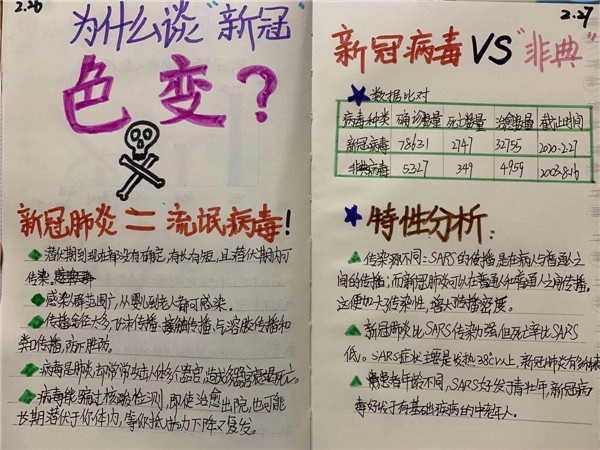 2.26
为什么谈"新冠"
色变?
新冠肺炎=流氓病毒!
潜伏期到现在都没有确定,有长有短,且潜伏期内可
传染。
感染人群范围广,从婴儿到老人都可感染。
传播途径太多,飞沫传播、接触传播、与溶胶传播和
粪口传播,防不胜防。
病毒是肺炎却常常攻击人体多个器官,造成多器官衰竭死亡。
病毒能骗过核酸检测,即使治愈出院,也可能
长期潜伏于你体内,等你抵抗力下降又复发。
2.27
新冠病毒VS"非典"
数据比对
病毒种类 确诊数量 死亡数量 治愈数量 截止时间
新冠病毒 78631 2747 32755 2020-2.27
非典病毒 5327 349 4959 2003-8.16
特性分析:
传染源不同:SARS的传播是在病人与普通人之
间的传播;而新冠肺炎可以在普通人和普通人之间传播,
这便加大传染性,增大传播密度。
新冠肺炎比SARS传染力强但死亡率比SARS
低。SARS症状主要是发热38℃以上,新冠肺炎有多种表
患者年龄不同,SARS好发于青壮年,新冠病
毒好发于有基础疾病的中老年人。